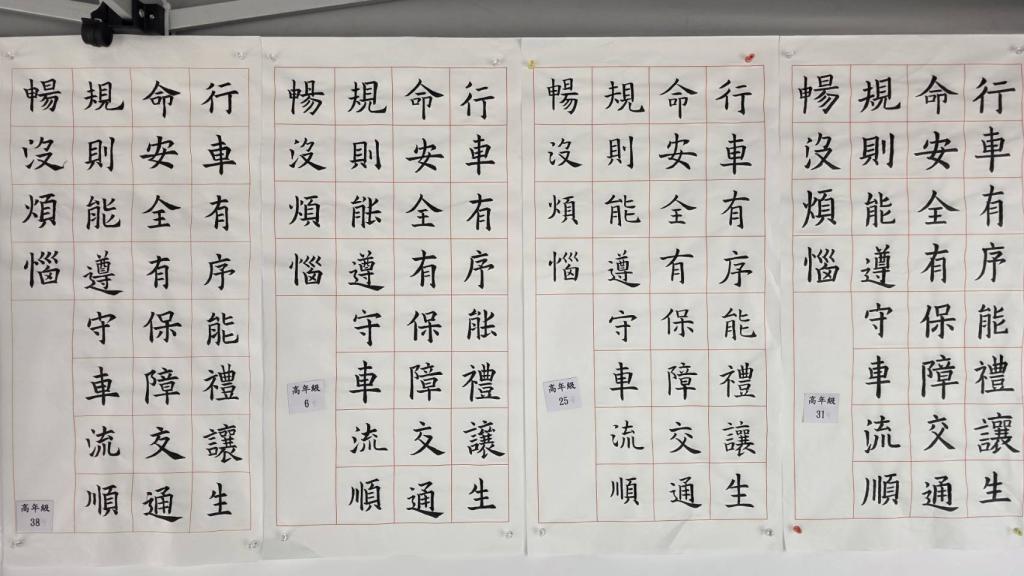 行車有序能禮讓生
命安全有保障交通
規則能遵守車流順
暢沒煩惱
高年級
38
行車有序能禮讓生
命安全有保障交通
規則能遵守車流順
暢沒煩惱
高年級
6
行車有序能禮讓生
命安全有保障交通
規則能遵守車流順
暢沒煩惱
高年級
25
行車有序能禮讓生
命安全有保障交通
規則能遵守車流順
暢沒煩惱
高年級
31